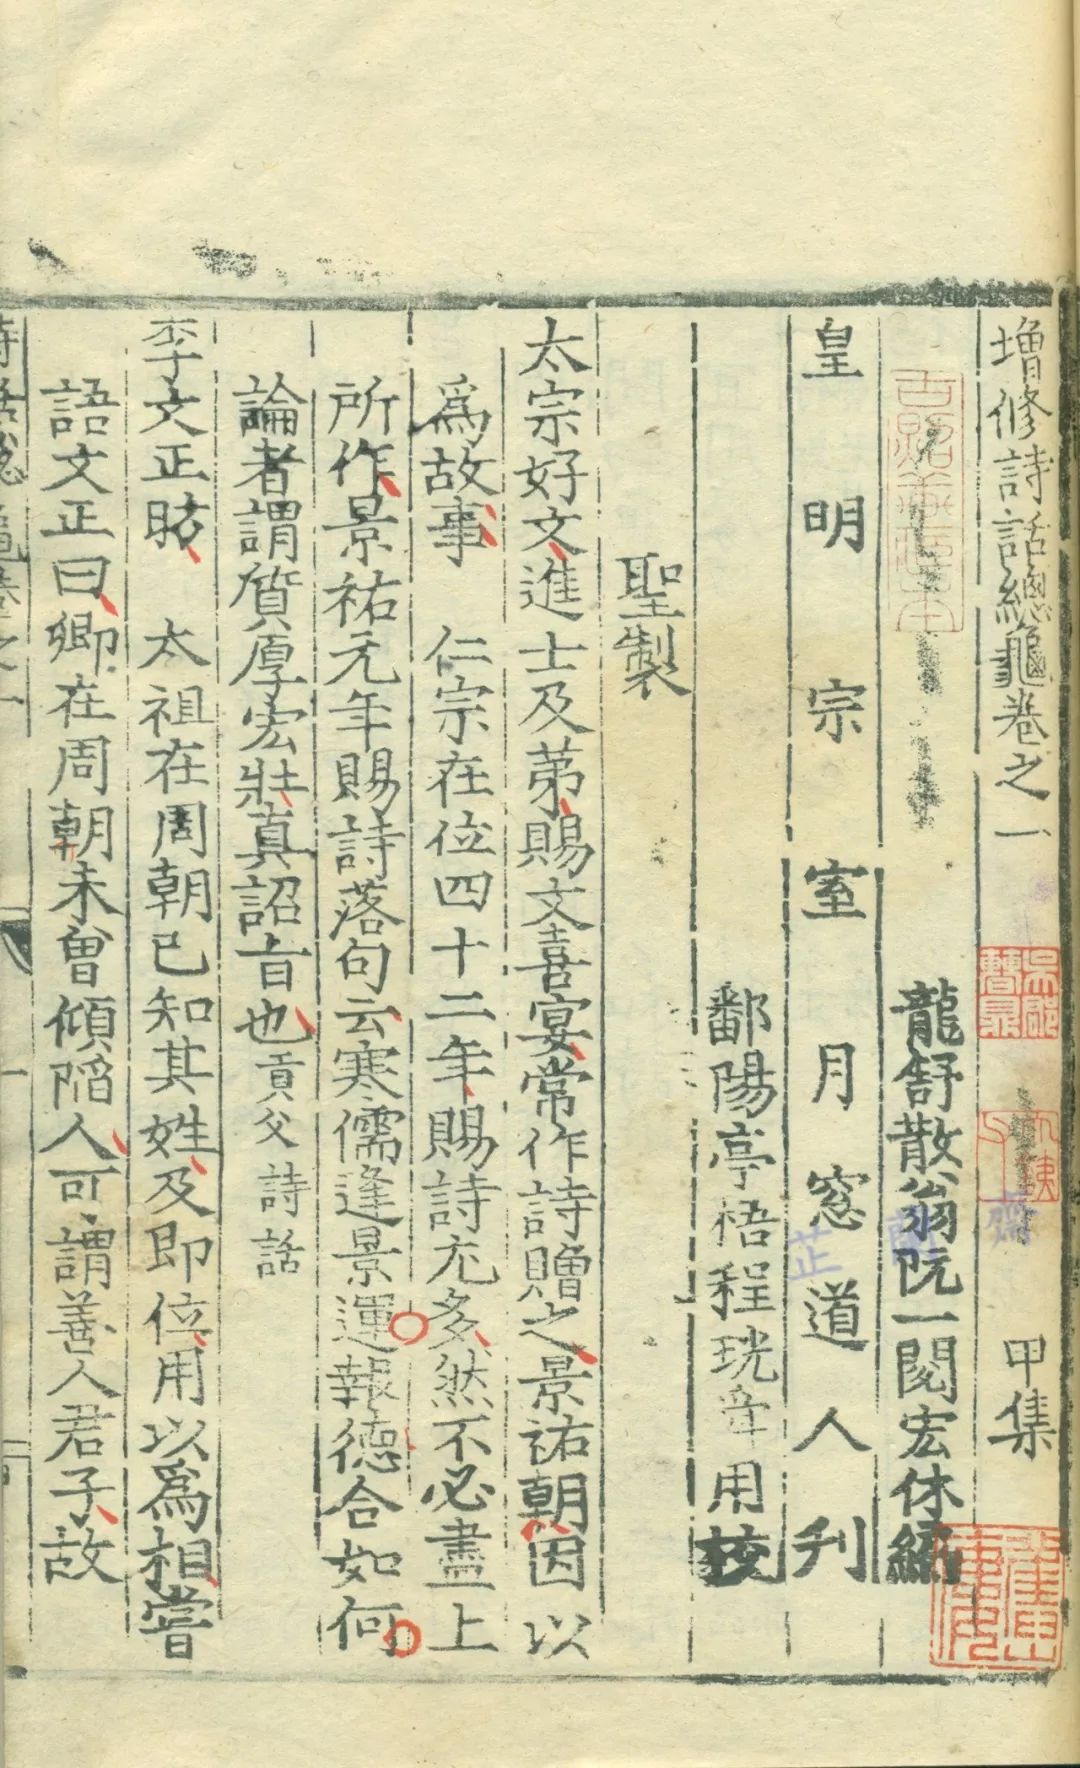 增修詩話總龜卷之一 甲集
龍舒散翁阮一閱宏休編
皇明宗室月窓道人刋
鄱陽亭梧程珖舜用校
聖製
太宗好文進士及第賜文喜宴常作詩贈之景祐朝因以
爲故事 仁宗在位四十二年賜詩尤多然不必盡上
所作景祐元年賜詩落句云寒儒逢景運報德合如何
論者謂質厚宏壯真詔旨也貢父詩話
李文正昉 太祖在周朝已知其姓及即位用以爲相嘗
語文正曰卿在周朝未曾傾陷人可謂善人君子故